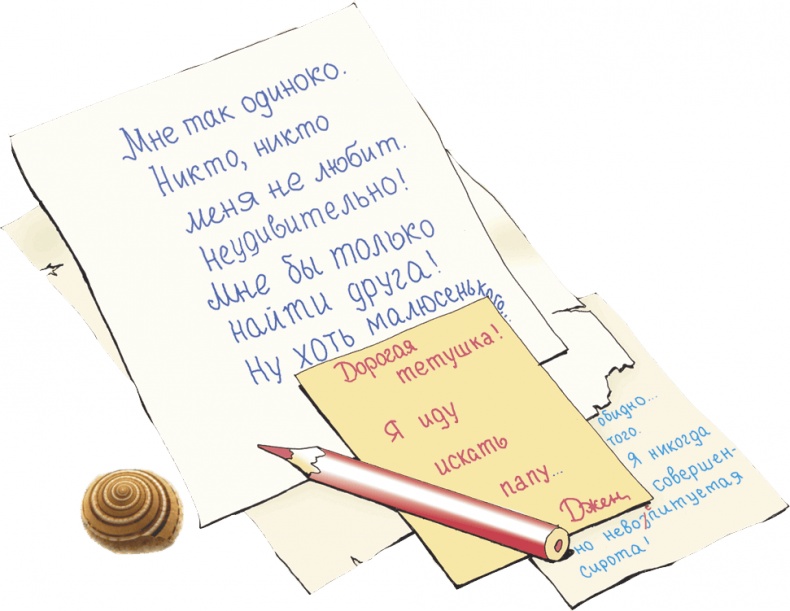 Мне так одиноко.
Никто, никто
меня не любит.
Неудивительно!
Мне бы только
найти друга!
Ну хоть малюсенького..
Дорогая
тетушка!
Я иду
искать
папу...
Джен
обидно...
того.
Я никогда
совершен-
но невозпитуемая
сирота!